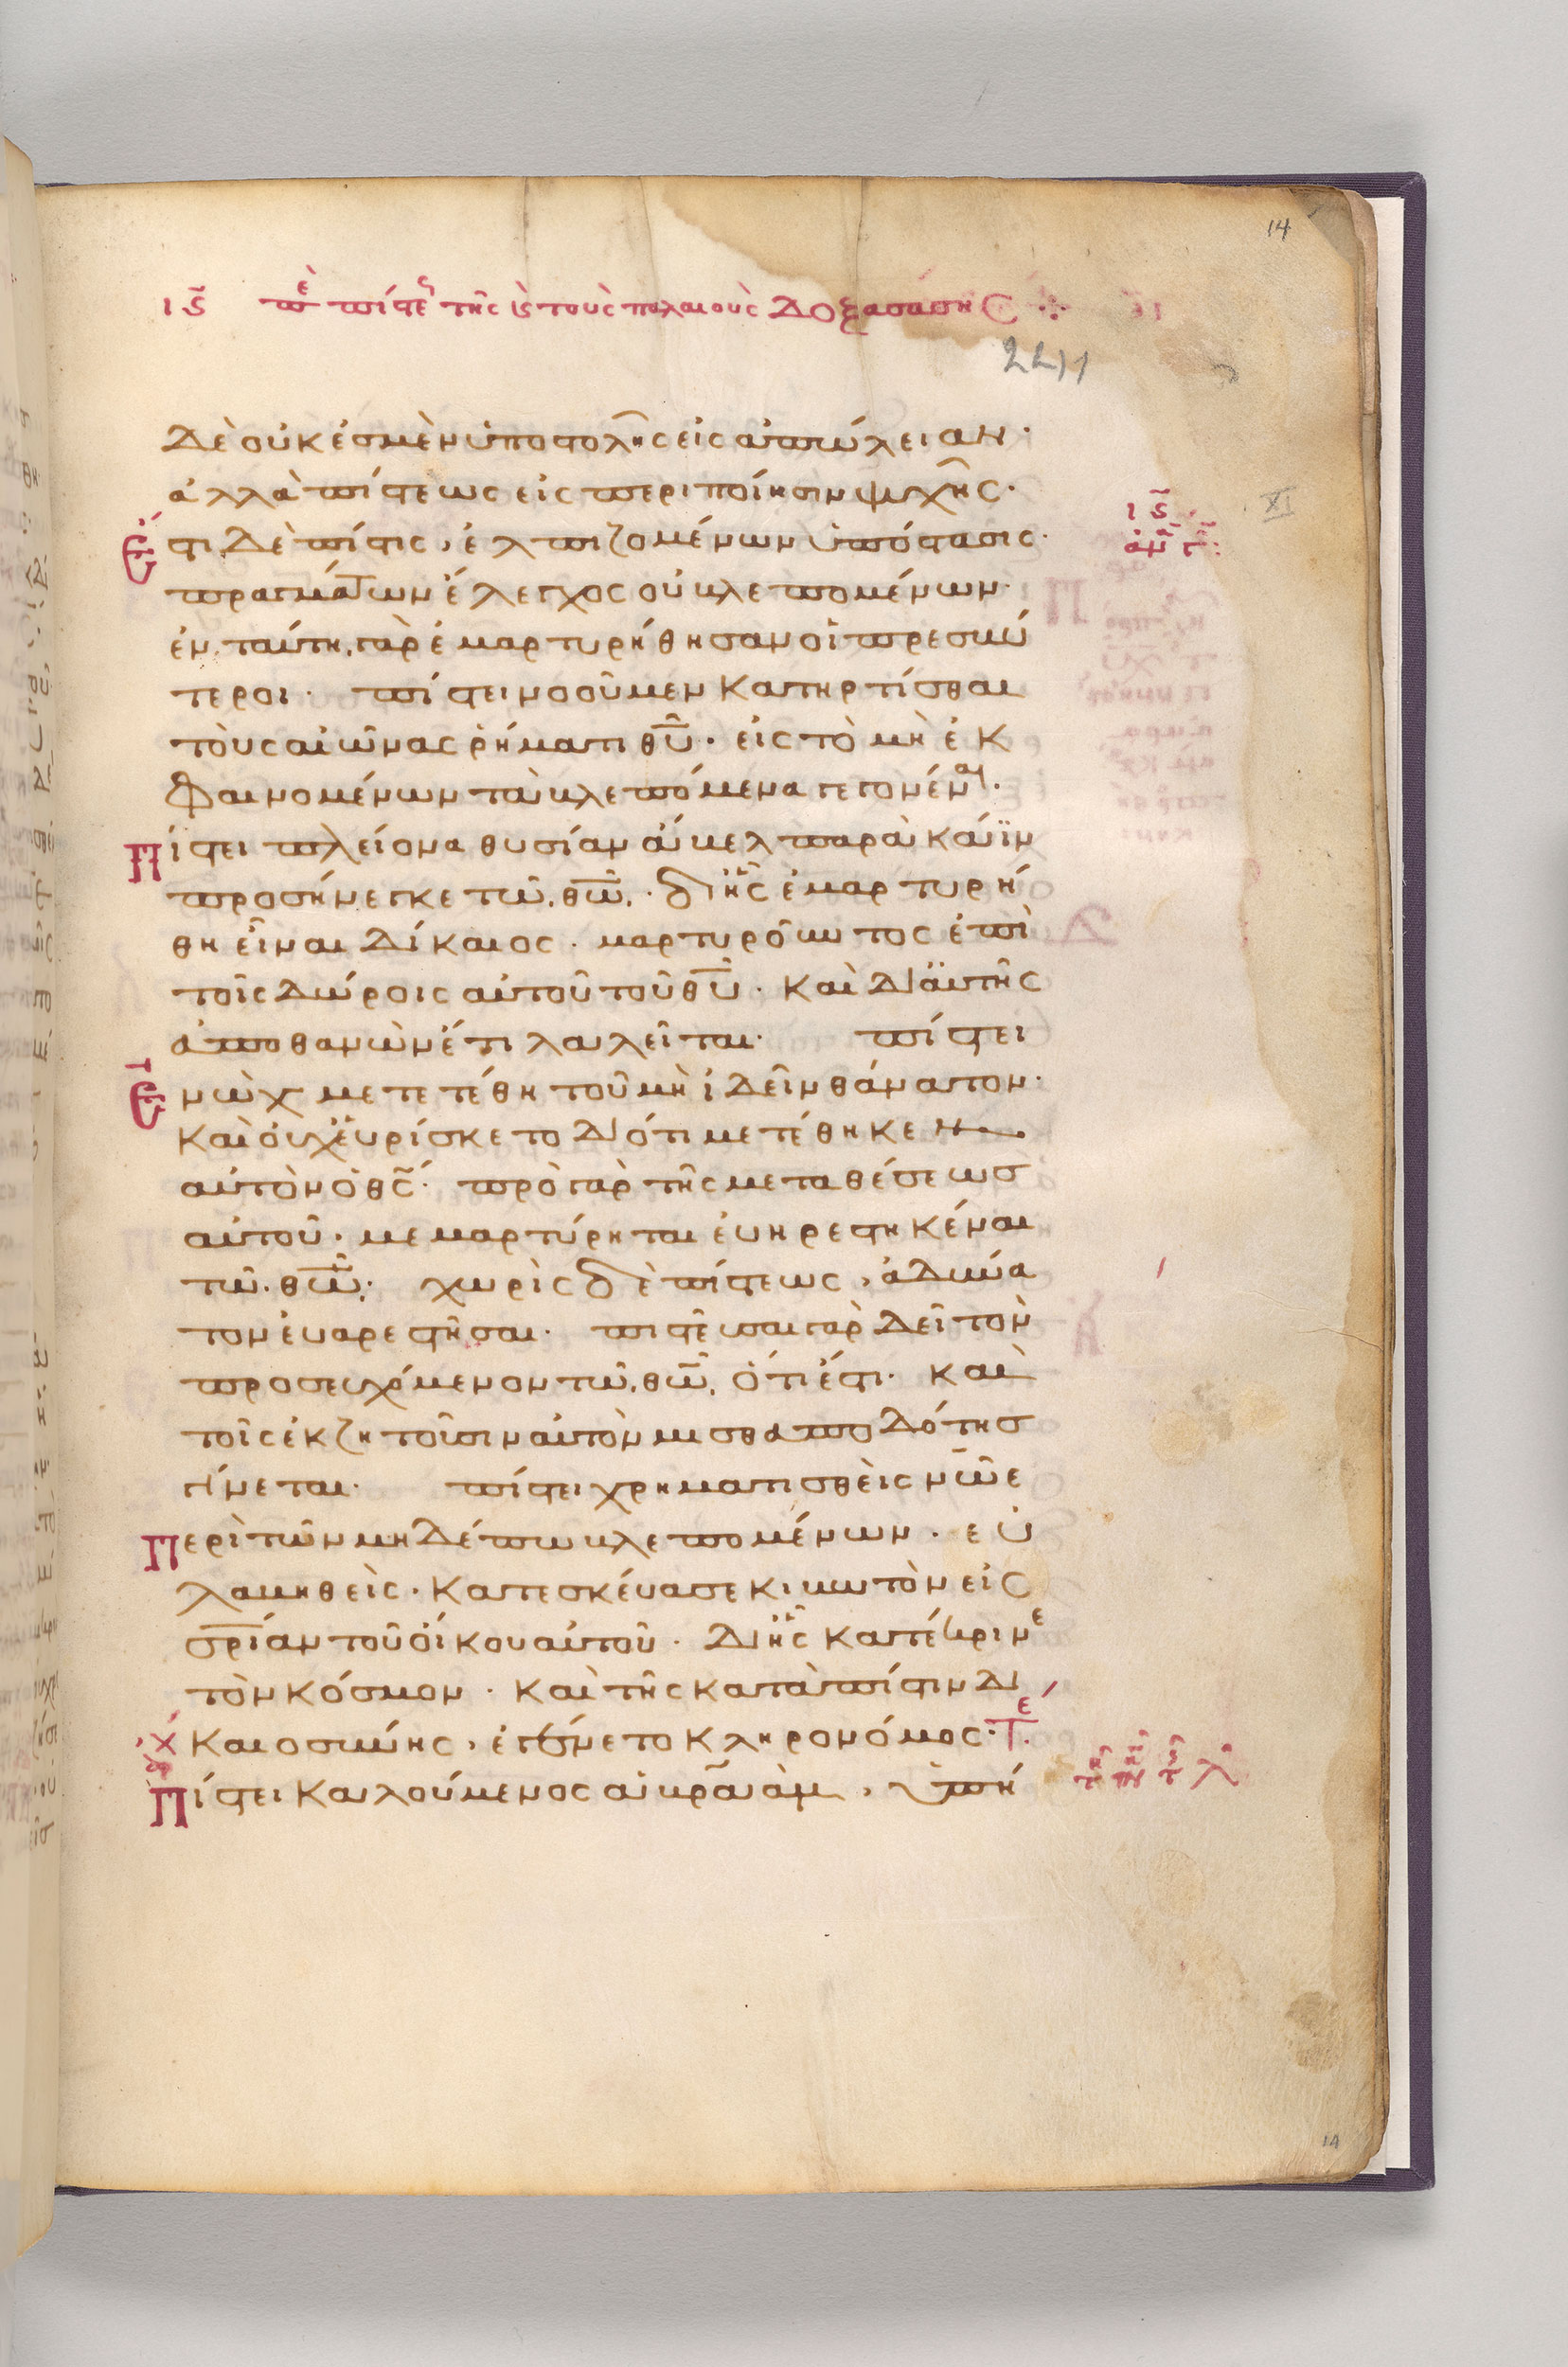 14
ιϛ πε πίστε τῆς κὶ τοὺς παλαιοὺς δοξασάσης
2241
δὲ οὐκ ἐσμὲν ὑποστολῆς εἰς ἀπώλειαν·
ἀλλὰ πίστεως εἰς περιποίησιν ψυχῆς·
ιϛ
XI
Ἔστι δὲ πίστις, ἐλπιζομένων ὑπόστασις·
πραγμάτων ἔλεγχος οὐ βλεπομένων·
ἐν ταύτη γὰρ ἐμαρτυρήθησαν οἱ πρεσβύ
τεροι· πίστει νοοῦμεν κατηρτίσθαι
τοὺς αἰῶνας ῥήματι θυ· εἰς τὸ μὴ ἐκ
φαινομένων τὰ βλεπόμενα γεγονέναι·
Πίστει πλείονα θυσίαν ἄβελ παρὰ κάϊν
προσήνεγκε τῶ θῶ· δι ἧς ἐμαρτυρή
θη εἶναι δίκαιος· μαρτυροῦντος ἐπὶ
τοῖς δώροις αὐτοῦ τοῦ θυ· καὶ δι αὐτῆς
ἀποθανὼν ἔτι λαλεῖται· πίστει
Ἐνὼχ μετετέθη τοῦ μὴ ἰδεῖν θάνατον·
καὶ οὐχ εὑρίσκετο διότι μετέθηκεν
αὐτὸν ὁ θς· πρὸ γὰρ τῆς μεταθέσεως
αὐτοῦ· μεμαρτύρηται εὐηρεστηκέναι
τῶ θῶ· χωρὶς δὲ πίστεως, ἀδύνα
τον εὐαρεστῆσαι· πιστεῦσαι γὰρ δεῖ τὸν
προσευχόμενον τῶ θῶ, ὅτι ἔστι· καὶ
τοῖς ἐκζητοῦσιν αὐτὸν μισθαποδότης
γίνεται· πίστει χρηματισθεὶς νῶε
Περὶ τῶν μηδέπω βλεπομένων· εὐ
λαβηθεὶς· κατεσκεύασε κιβωτὸν εἰς
σρίαν τοῦ οἴκου αὐτοῦ· δι ἧς κατέκρινε
τὸν κόσμον· καὶ τῆς κατὰ πίστιν δι
καιοσύνης, ἐγένετο κληρονόμος· Τε
Πίστει καλούμενος ἀβραὰμ, ὑπή
14